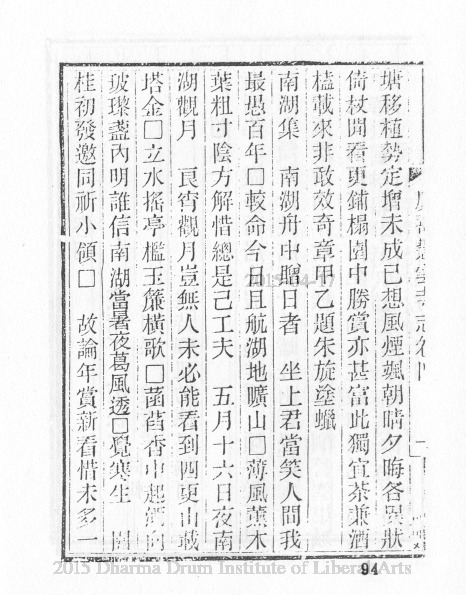 塘移植勢定增未成已想風煙颯朝晴夕晦各異狀
倚杖閒看更鋪榻園中勝賞亦甚富此獨宜茶兼酒
榼載來非敢效奇章甲乙題朱旋塗蠟
南湖集　南湖舟中贈日者　坐上君當笑人問我
最愚百年□較命今日且航湖地曠山□薄風薰木
葉粗寸陰方解惜總是己工夫　五月十六日夜南
湖觀月　良宵觀月豈無人未必能看到四更山戴
塔金□立水搖亭檻玉簾橫歌□菡萏香中起
玻瓈盞內明誰信南湖當暑夜葛風透□覺寒生
桂初發邀同祈小領□　故論年賞新看惜未多一
94
2015-04-17
2015 Dharma Drum Institute of Liberal Arts